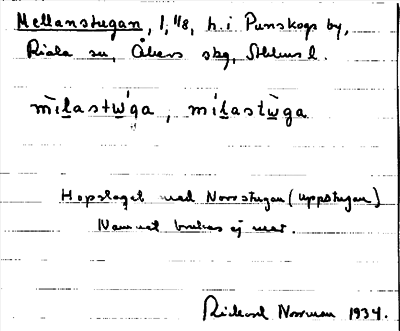 Mellanstugan, 1, 1/8, h. i Punskogs by,
Riala sn, Åkers skg, Sthlms l.
mìlastẃga, mílastẁga
Hopslaget med Norrstugan (uppstugan)
Namnet brukas ej mer.
Rickard Norrman 1934.